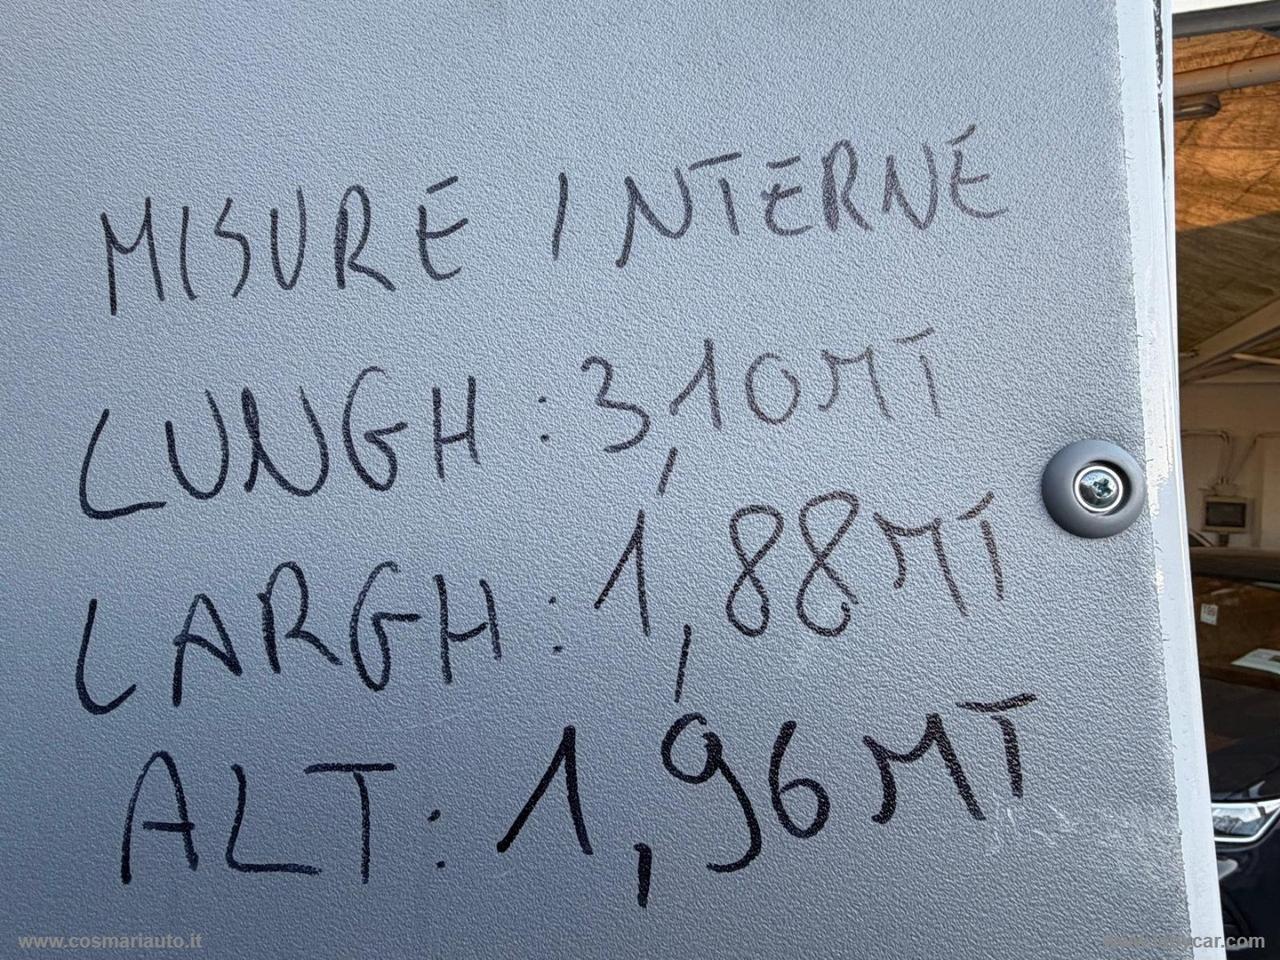 MISURE INTERNE
LUNGH: 3,10MT
LARGH: 1,88MT
ALT: 1,96MT
www.cosmariauto.it